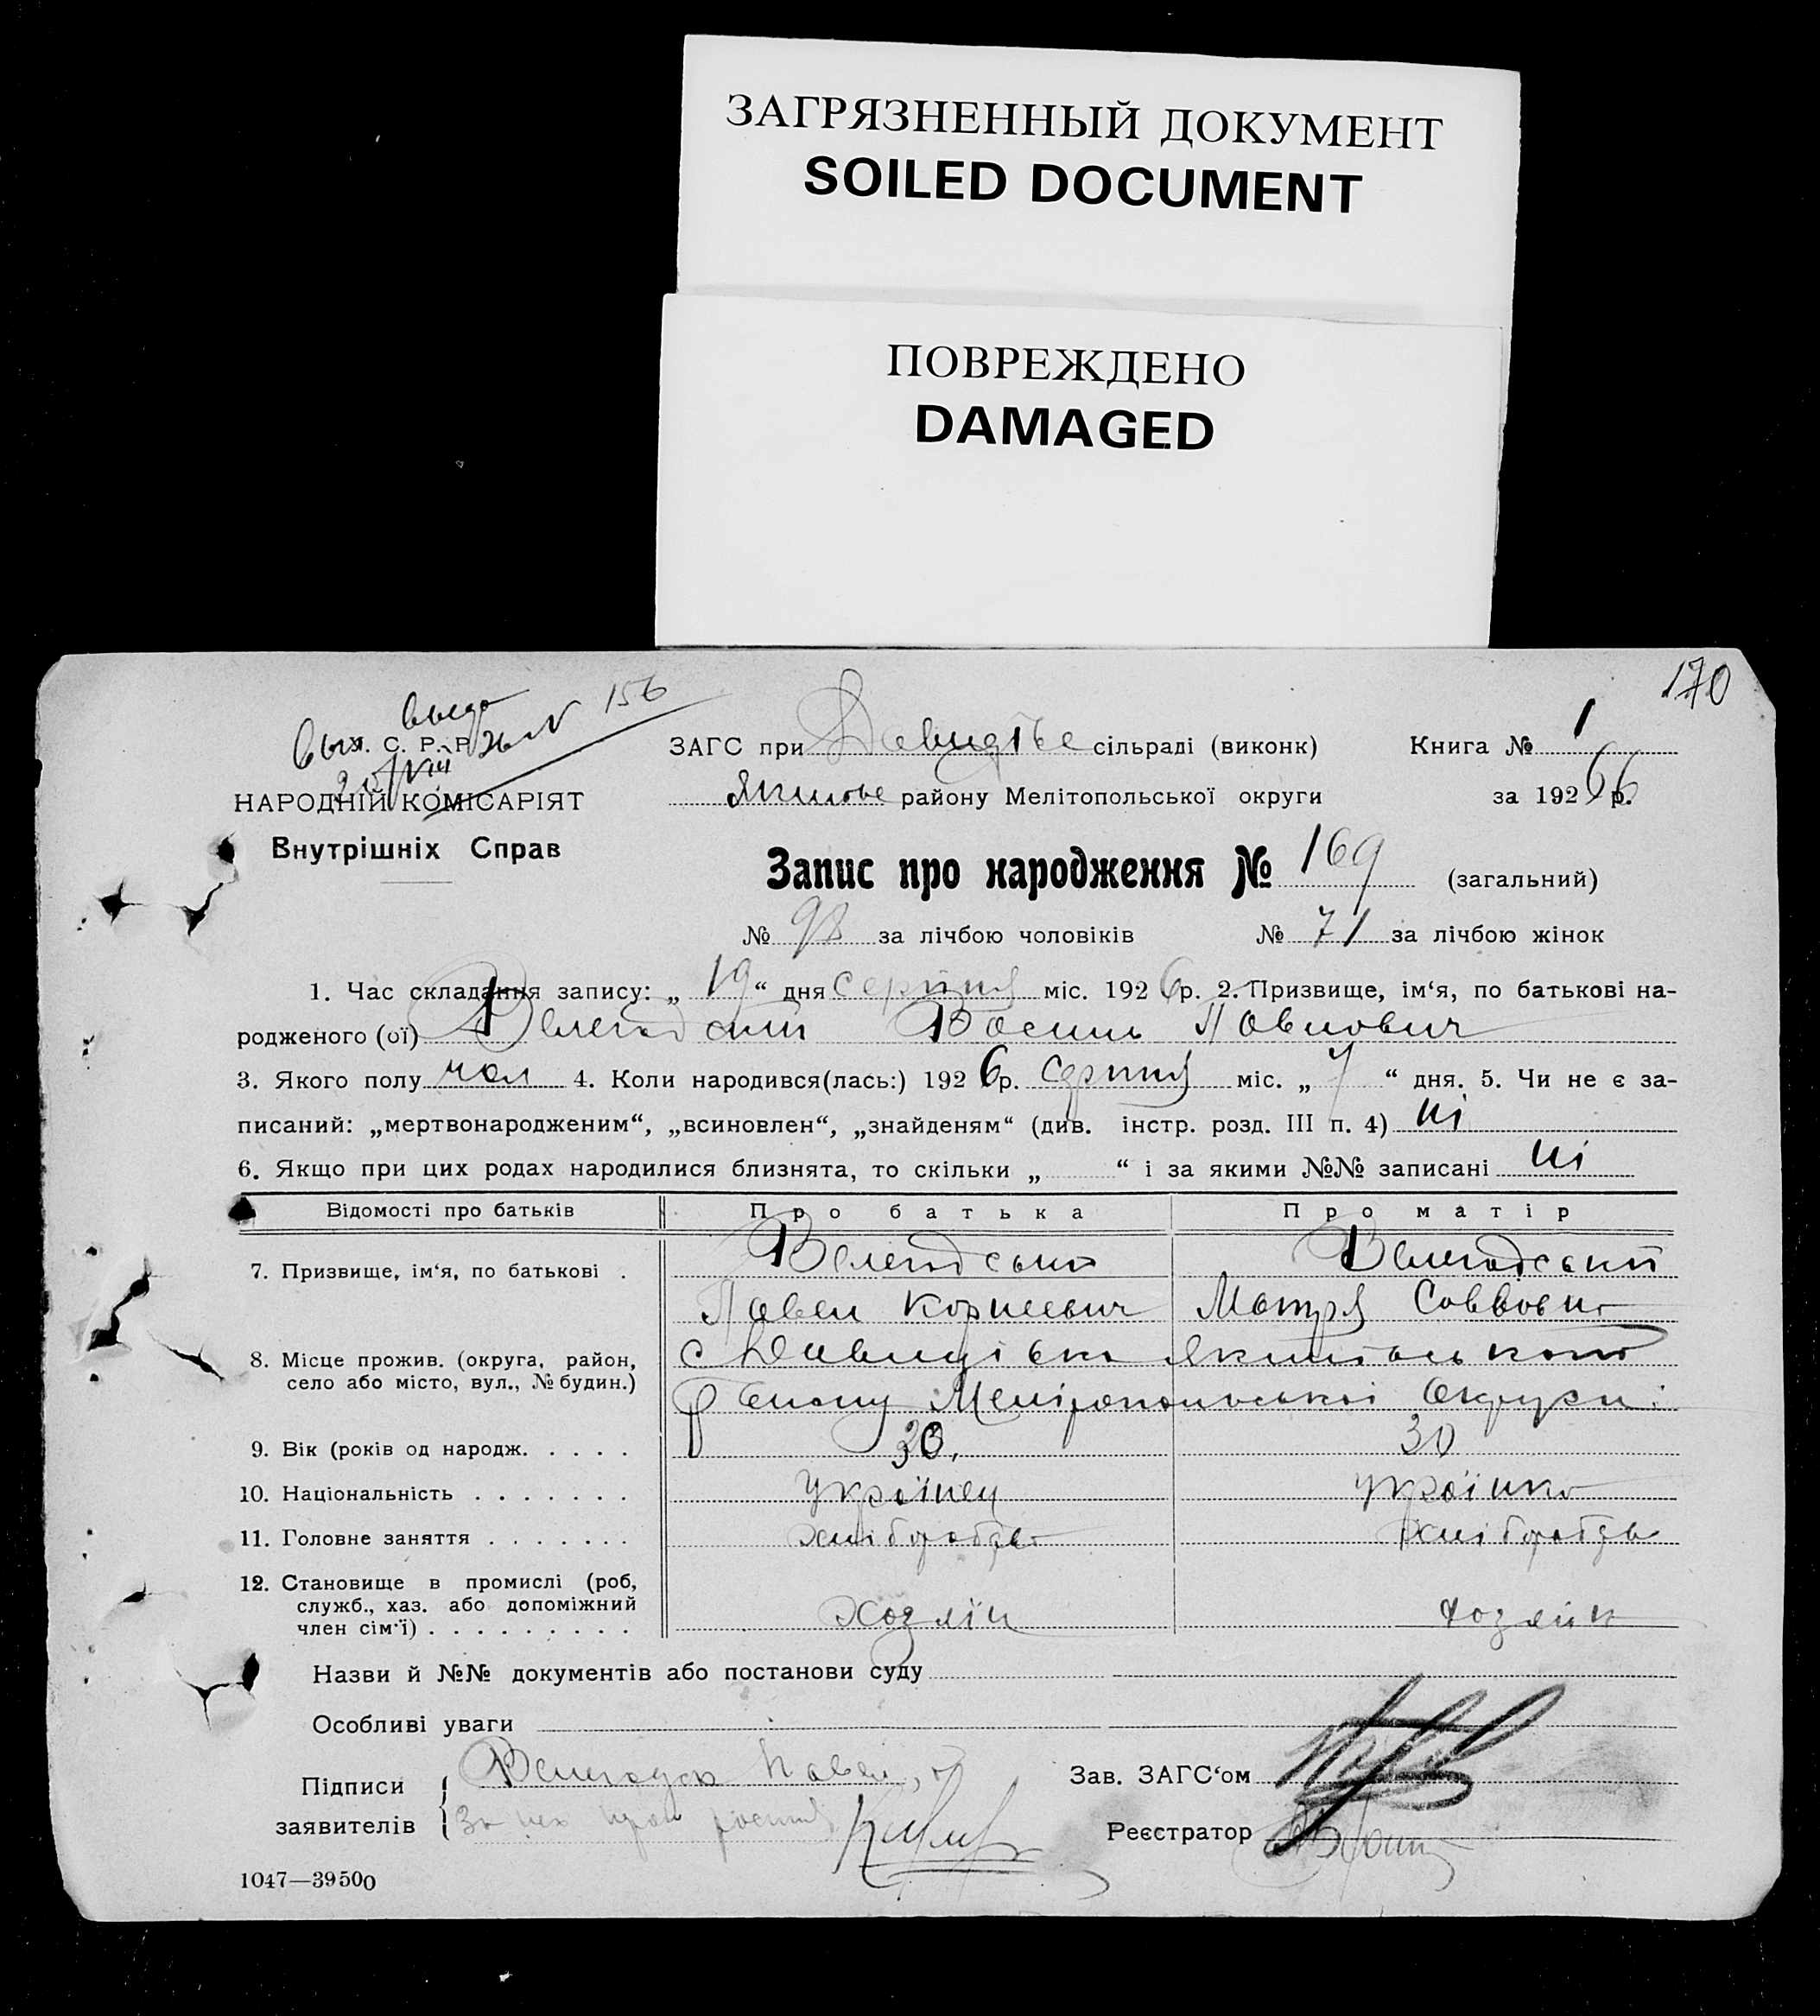 ЗАГРЯЗНЕННЫЙ ДОКУМЕНТ
SOILED DOCUMENT
ПОВРЕЖДЕНО
DAMAGED
170
156
С. Р. Р.
НАРОДНІЙ КОМІСАРІЯТ
Внутрішніх Справ
ЗАГС при сільраді (виконк) Книга № 1
району Мелітопольської округи за 1926 р.
Запис про народження № 169 (загальний)
№ 98 за лічбою чоловіків № 71 за лічбою жінок
1. Час складання запису: „ 19 “ дня серпня міс. 1926 р. 2. Призвище, ім‘я, по батькові на-
родженого (ої) Василь Павлович
3. Якого полу чол 4. Коли народився(лась:) 1926 р. серпня міс. „ 7 “ дня. 5. Чи не є за-
писаний: „мертвонародженим“, „всиновлен“, „знайденям“ (див. інстр. розд. III п. 4) ні
6. Якщо при цих родах народилися близнята, то скільки „ “ і за якими №№ записані ні
Відомості про батьків Про батька Про матір
7. Призвище, ім‘я, по батькові .
Павел Корнеевич Мотря Саввовна
8. Місце прожив. (округа, район,
село або місто, вул., № будин.)
с Давидівка
Мелітопольської Округи
9. Вік (років од народж. . . . . 30. 30
10. Національність . . . . . . . Українец Українка
11. Головне заняття . . . . . . . хліборобство хліборобство
12. Становище в промислі (роб,
служб., хаз. або допоміжний
член сім‘ї) . . . . . . . . . Хозяїн
Назви й №№ документів або постанови суду
Особливі уваги
Підписи
заявителів
Павел
Зав. ЗАГС‘ом
Реєстратор
1047—39500